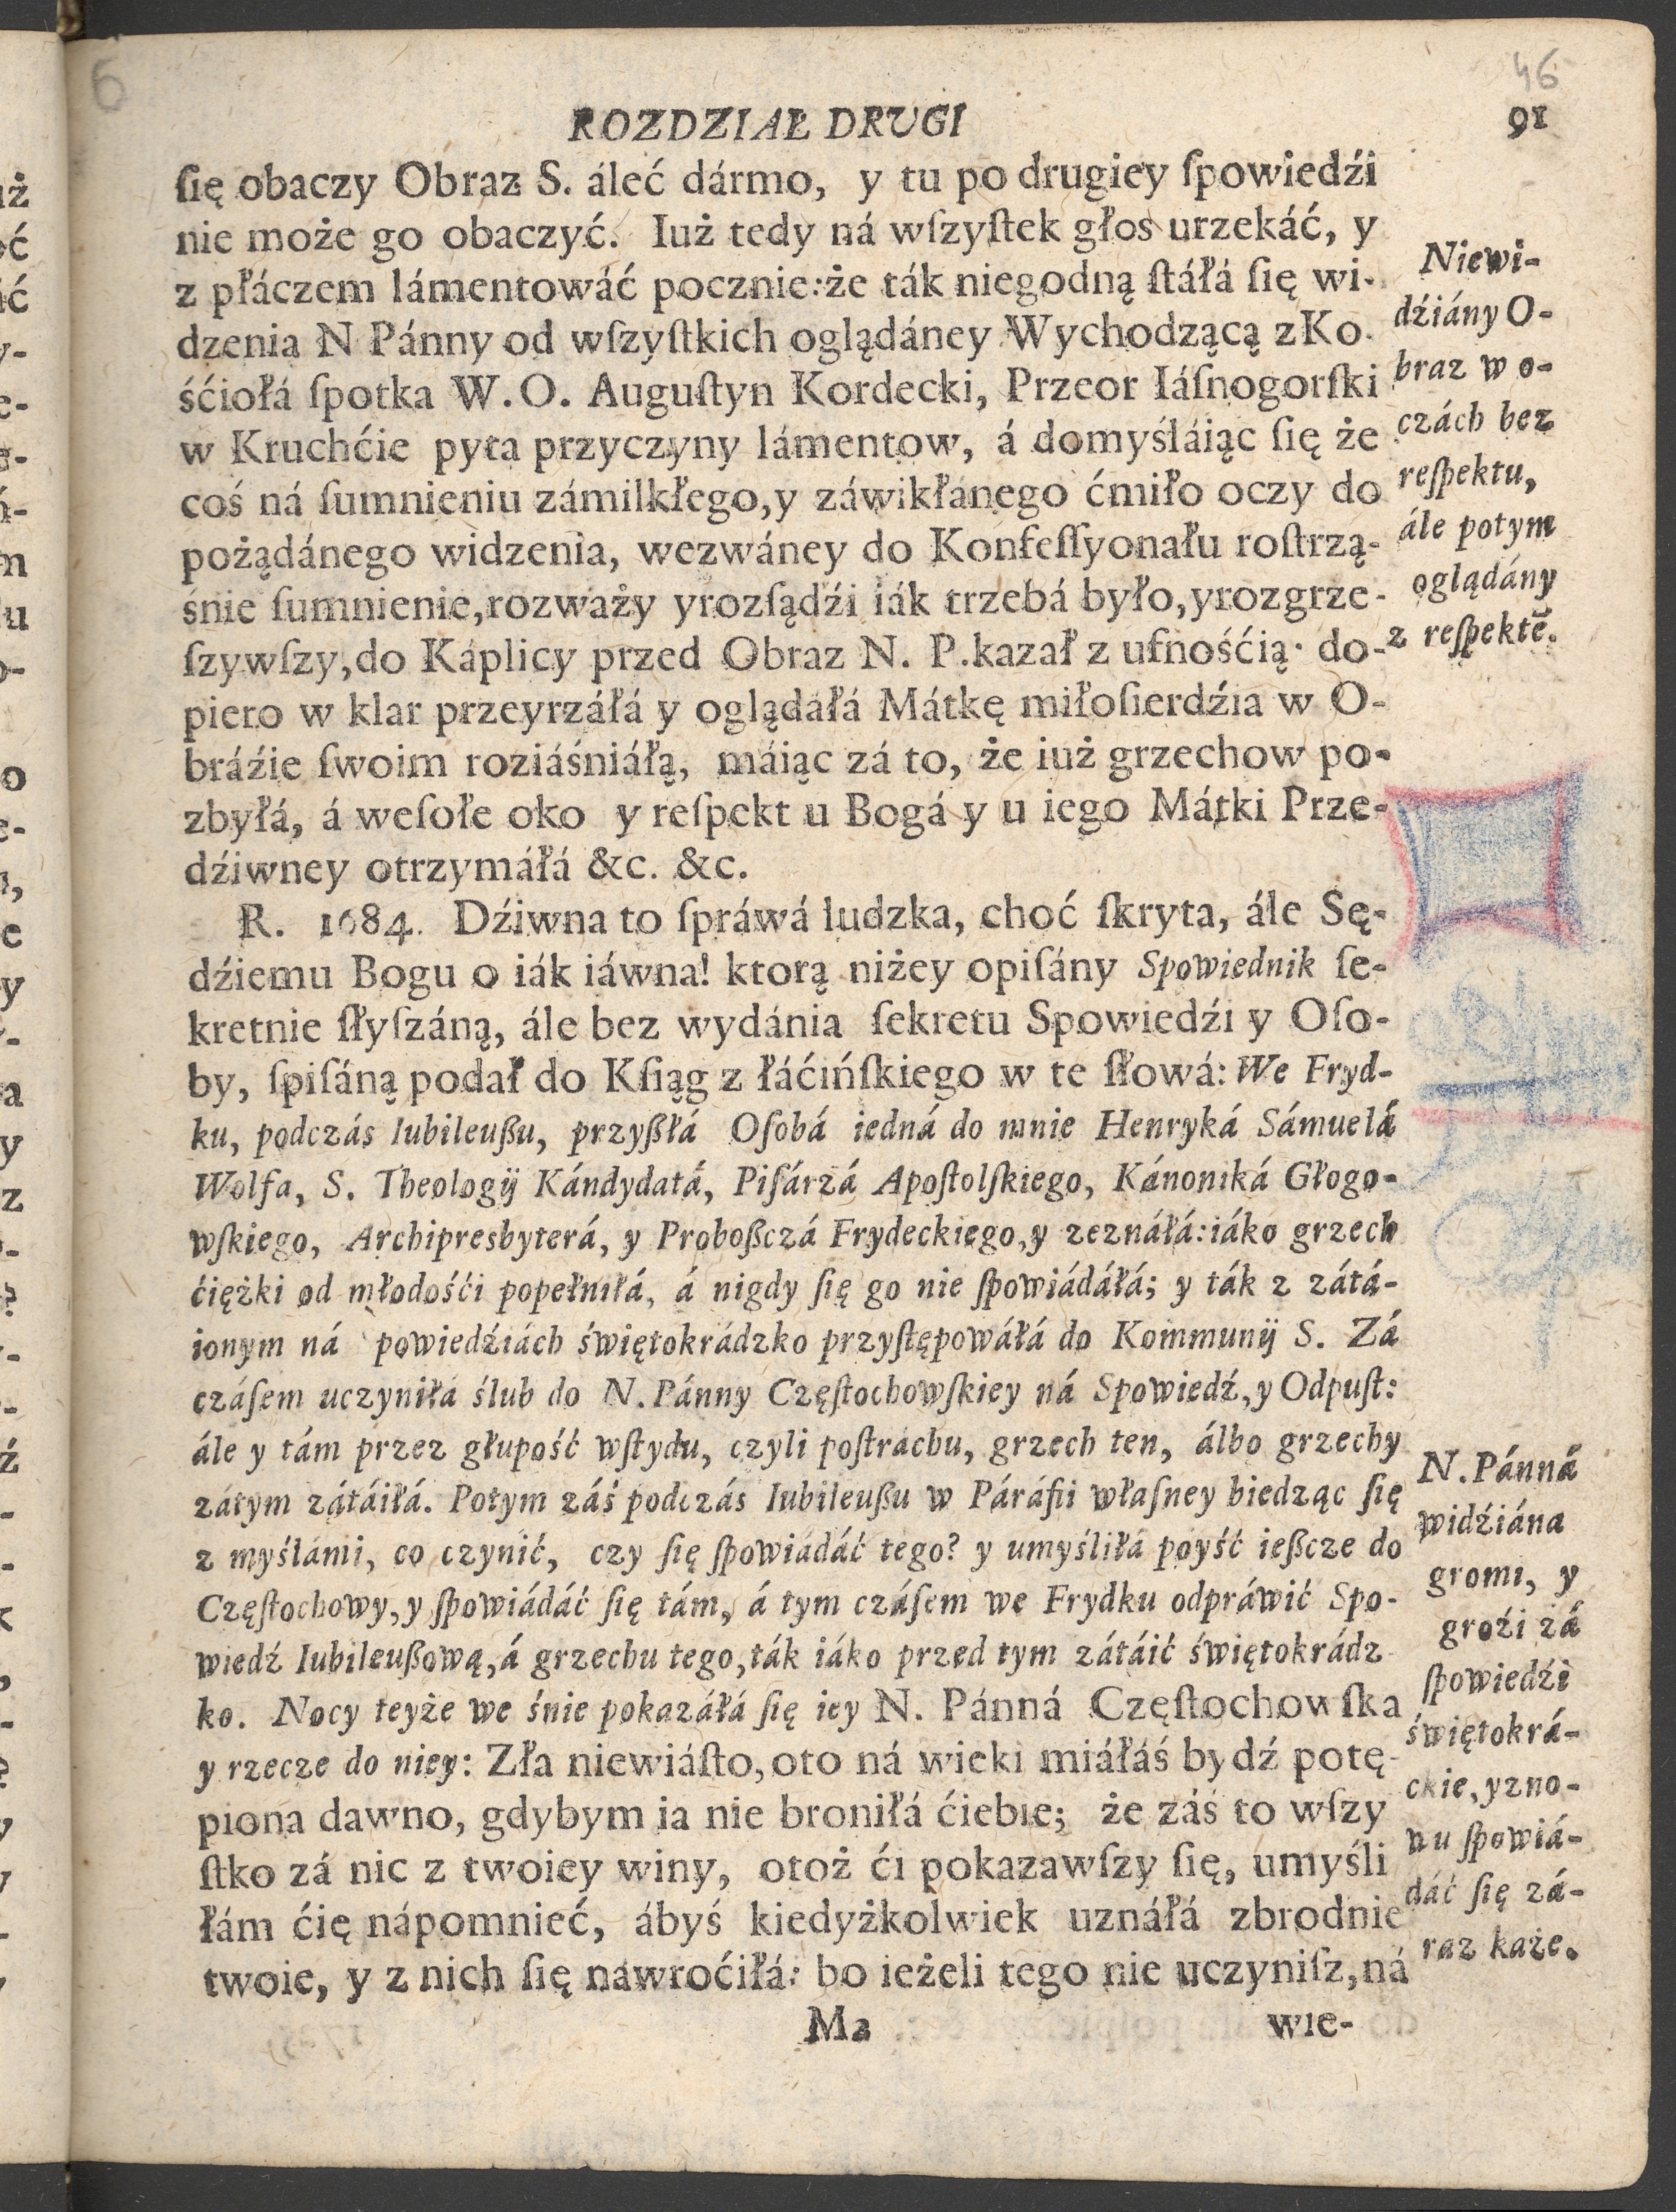 46
ROZDZIAŁ DRVGI 91
ſię obaczy Obraz S. áleć dármo, y tu po drugiey ſpowiedźi
nie może go obaczyć. Iuż tedy ná wſzyſtek głos urzekáć, y
z płáczem lámentowáć pocznie:że ták niegodną ſtáłá ſię wi-
dzenia N Pánny od wſzyſtkich oglądáney Wychodzącą z Ko
śćiołá ſpotka W.O. Auguſtyn Kordecki, Przeor Iáſnogorſki
w Kruchćie pyta przyczyny lámentow, á domyśláiąc ſię że
coś ná ſumnieniu zámilkłego,y záwikłánego ćmiło oczy do
pożądánego widzenia, wezwáney do Konfeſſyonału roſtrzą-
śnie ſumnienie,rozważy yrozſądźi iák trzebá było,yrozgrze-
ſzywſzy,do Káplicy przed Obraz N. P.kazał z ufnośćią· do-
piero w klar przeyrzáłá y oglądáłá Mátkę miłoſierdźia w O-
bráźie ſwoim roziáśniáłą, máiąc zá to, że iuż grzechow po-
zbyłá, á weſołe oko y reſpekt u Bogá y u iego Mátki Prze-
dźiwney otrzymáłá &c. &c.
Niewi-
dźiány O-
braz w o-
czách bez
reſpektu,
ále potym
oglądány
z reſpektē.
R. 1684. Dźiwna to ſpráwá ludzka, choć ſkryta, ále Sę-
dźiemu Bogu o iák iáwna! ktorą niżey opiſány Spowiednik ſe-
kretnie ſłyſzáną, ále bez wydánia ſekretu Spowiedźi y Oſo-
by, ſpiſáną podał do Kſiąg z łáćińſkiego w te ſłowá: We Fryd-
ku, podczás Iubileußu, przyßłá Oſobá iedná do mnie Henryká Sámuelá
Wolfa, S. Theologij Kándydatá, Piſárzá Apoſtolſkiego, Kánoniká Głogo-
wſkiego, Archipresbyterá, y Proboßczá Frydeckiego,y zeznáłá:iáko grzech
ćięźki od młodośći popełniłá, á nigdy ſię go nie ſpowiádáłá; y ták z zátá-
ionym ná powiedźiách świętokrádzko przyſtępowáłá do Kommunij S. Zá
czáſem uczyniłá ślub do N.Pánny Częſtochowſkiey ná Spowiedź,y Odpuſt:
ále y tám przez głupość wſtydu, czyli poſtrachu, grzech ten, álbo grzechy
zátym zátáiłá. Potym záś podczás Iubileußu w Páráfii właſney biedząc ſię
z myślámi, co czynić, czy ſię ſpowiádáć tego? y umyśliłá poyść ießcze do
Częſtochowy,y ſpowiádáć ſię tám, á tym czáſem we Frydku odpráwić Spo-
wiedź Iubileußową,á grzechu tego,ták iáko przed tym zátáić świętokrádz
ko. Nocy teyże we śnie pokazáłá ſię iey N. Pánná Częſtochowſka
y rzecze do niey: Zła niewiáſto,oto ná wieki miáłáś bydź potę-
piona dawno, gdybym ia nie broniłá ćiebie; że záś to wſzy
ſtko zá nic z twoiey winy, otoż ći pokazawſzy ſię, umyśli
łám ćię nápomnieć, ábyś kiedyżkolwiek uznáłá zbrodnie
twoie, y z nich ſię náwroćiłá: bo ieżeli tego nie uczyniſz,ná
N.Pánná
widźiána
gromi, y
groźi zá
ſpowiedźi
świętokrá-
ckie,yzno-
nu ſpowiá-
dáć ſię zá-
raz każe.
M2 wie-